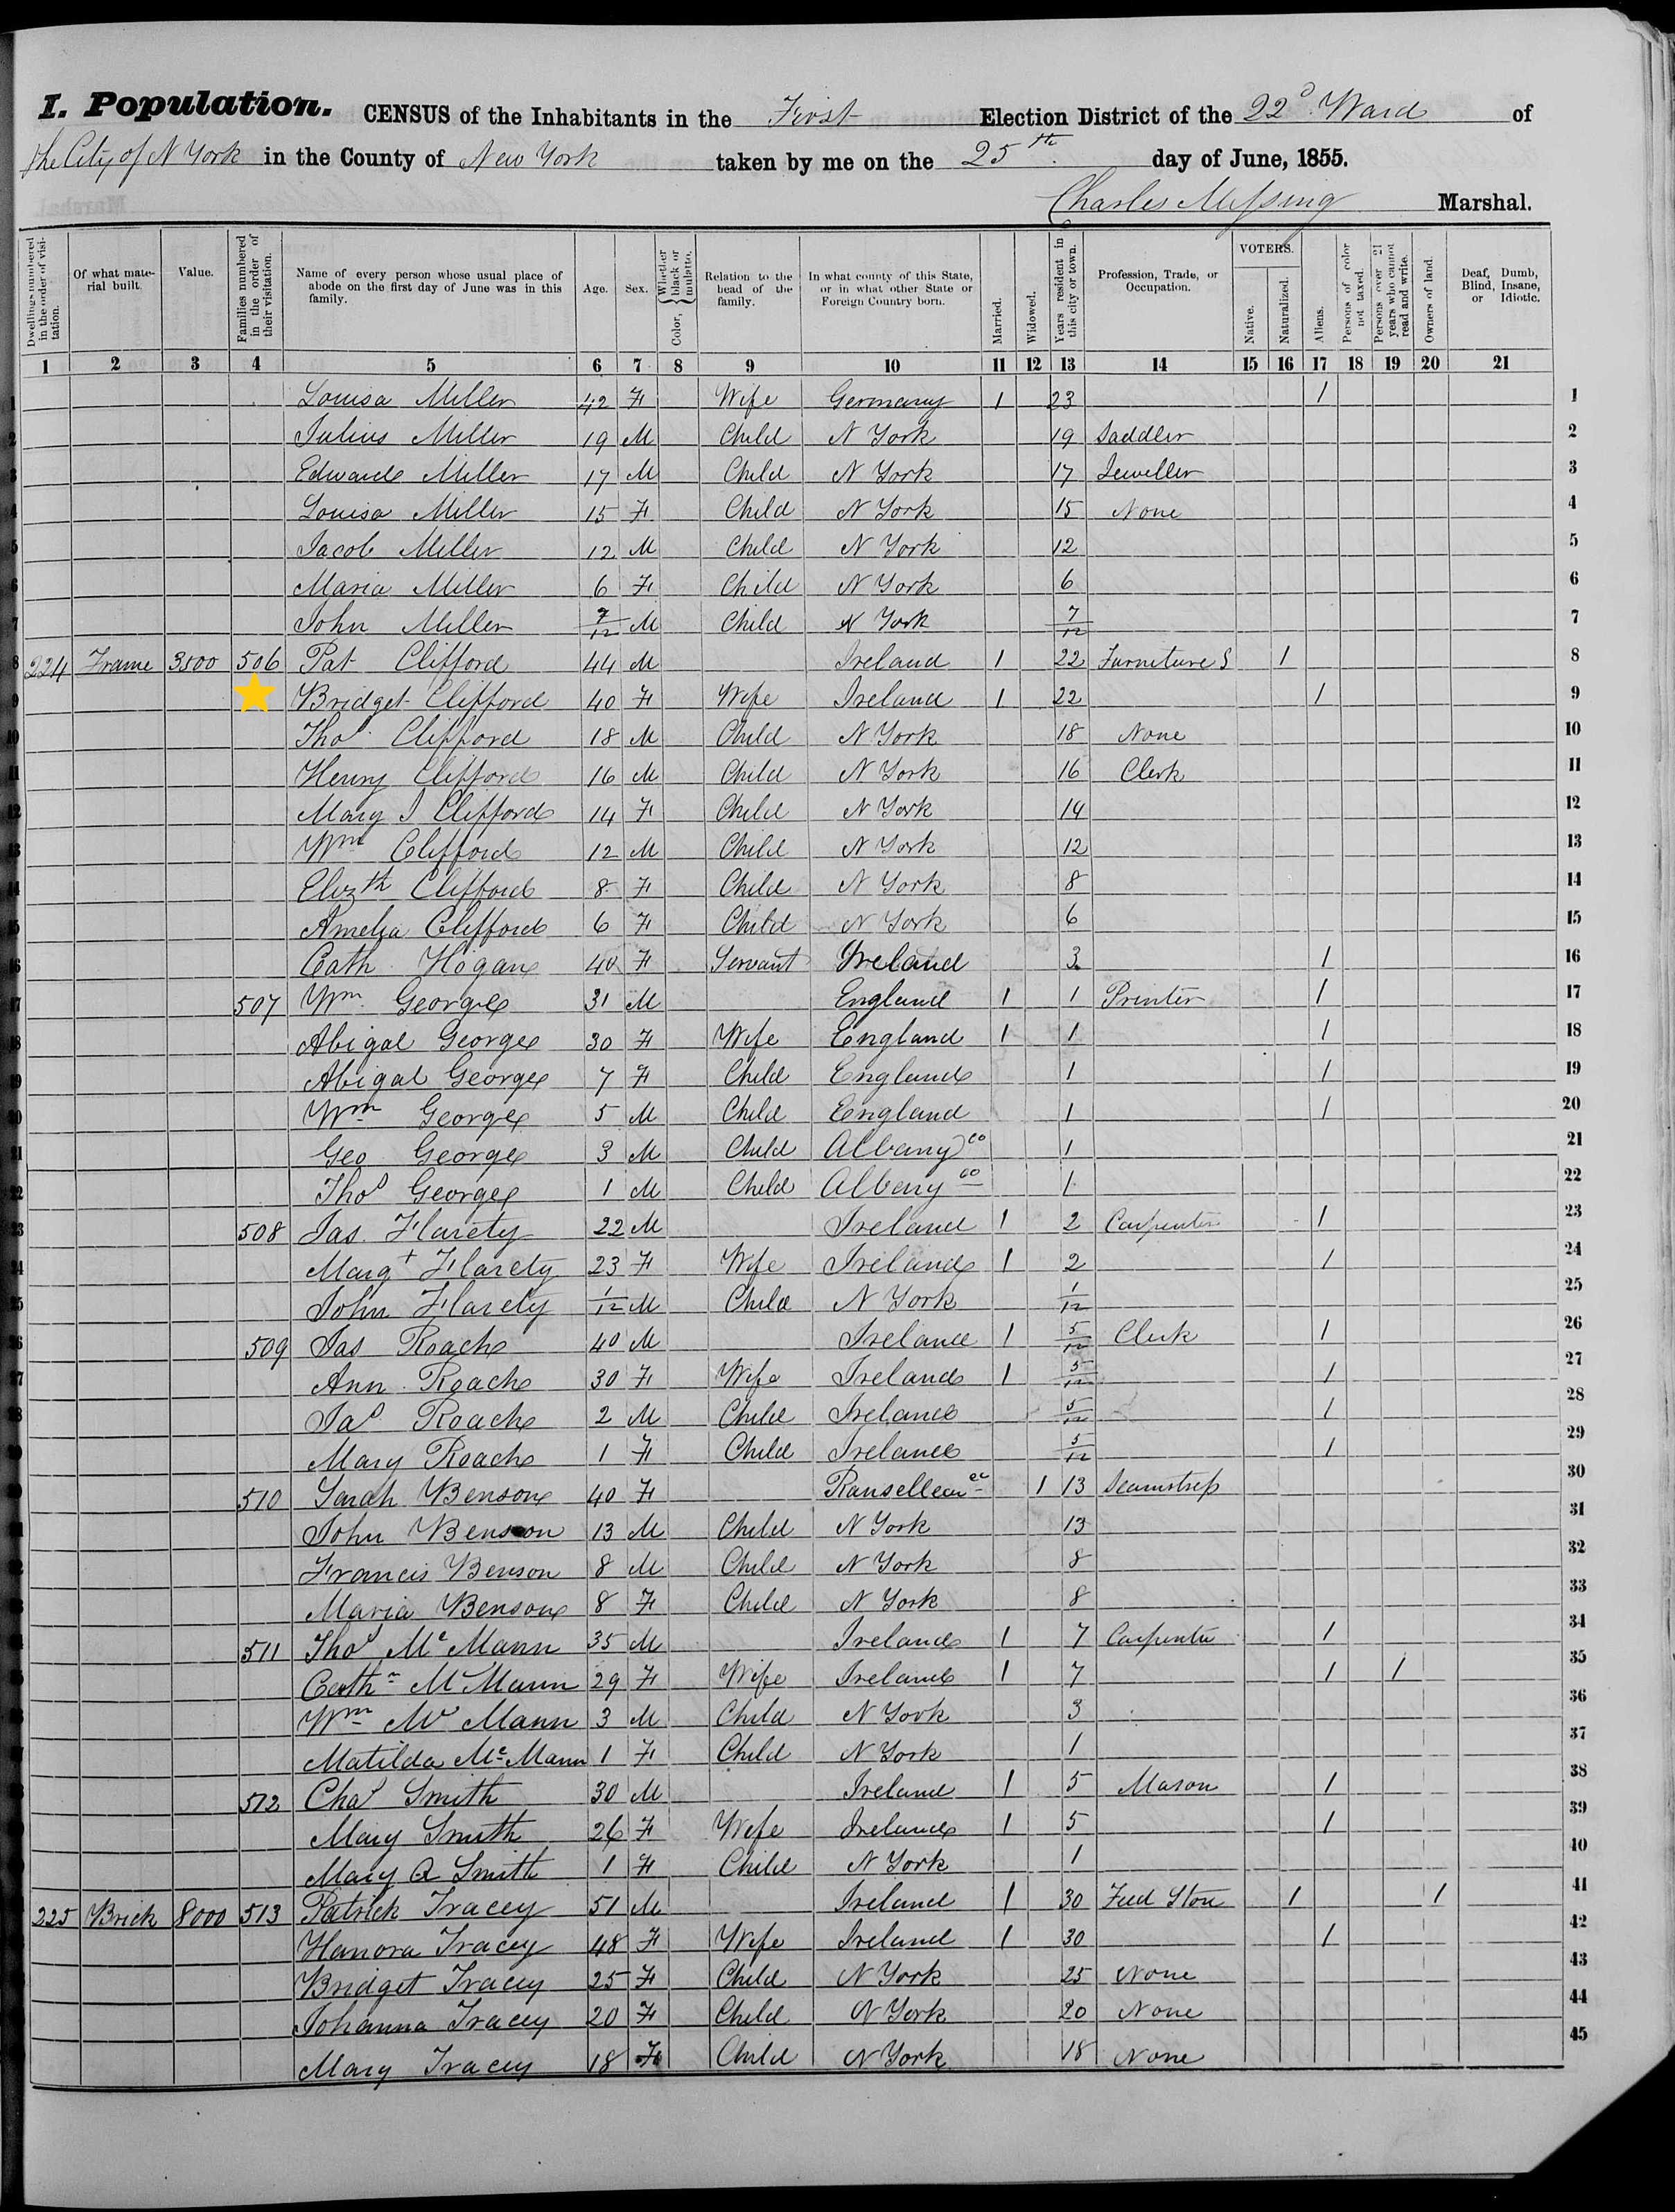 I. Population. CENSUS of the Inhabitants in the First Election District of the 22d Ward of
the City of N York in the County of New York taken by me on the 25th day of June, 1855.
Charles Messing Marshal.
Dwellings numbered in the order of visitation. Of what material built. Value. Families numbered in the order of their visitation. Name of every person whose usual place of abode on the first day of June was in this family. Age. Sex. Color, { Whether black or mulatto. Relation to the head of the family. In what county of this State, or in what other State or Foreign Country born. Married. Widowed. Years resident in this city or town. Profession, Trade, or Occupation. VOTERS. Native. Naturalized. Aliens. Persons of color not taxed. Persons over 21 years who cannot read and write. Owners of land. Deaf, Dumb, Blind, Insane, or Idiotic.
1 2 3 4 5 6 7 8 9 10 11 12 13 14 15 16 17 18 19 20 21
1 Louisa Miller 42 F Wife Germany 1 23 1 1
2 Julius Miller 19 M Child N York 19 Saddler 2
3 Edward Miller 17 M Child N York 17 Jeweller 3
4 Louisa Miller 15 F Child N York 15 None 4
5 Jacob Miller 12 M Child N York 12 5
6 Maria Miller 6 F Child N York 6 6
7 John Miller 7/12 M Child N York 7/12 7
8 224 Frame 3500 506 Pat Clifford 44 M Ireland 1 22 Furniture S 1 8
9 Bridget Clifford 40 F Wife Ireland 1 22 1 9
10 Thos Clifford 18 M Child N York 18 None 10
11 Henry Clifford 16 M Child N York 16 Clerk 11
12 Mary J Clifford 14 F Child N York 14 12
13 Wm Clifford 12 M Child N York 12 13
14 Elizth Clifford 8 F Child N York 8 14
15 Amelia Clifford 6 F Child N York 6 15
16 Cath Hogan 40 F Servant Ireland 3 1 16
17 507 Wm George 31 M England 1 1 Printer 1 17
18 Abigal George 30 F Wife England 1 1 1 18
19 Abigal George 7 F Child England 1 1 19
20 Wm George 5 M Child England 1 1 20
21 Geo George 3 M Child Albany co 1 21
22 Thos George 1 M Child Albany co 1 22
23 508 Jas. Flarety 22 M Ireland 1 2 Carpenter 1 23
24 Margt Flarety 23 F Wife Ireland 1 2 1 24
25 John Flarety 1/12 M Child N York 1/12 25
26 509 Jas Roach 40 M Ireland 1 5/12 Clerk 1 26
27 Ann Roach 30 F Wife Ireland 1 5/12 1 27
28 Jas Roach 2 M Child Ireland 5/12 1 28
29 Mary Roach 1 F Child Ireland 5/12 1 29
510 Sarah Benson 40 F Ranselleau co 1 13 Seamstress 30
John Benson 13 M Child N York 13 31
Francis Benson 8 M Child N York 8 32
Maria Benson 8 F Child N York 8 33
511 Thos Mc Mann 35 M Ireland 1 7 Carpenter 1 34
Cathn Mc Mann 29 F Wife Ireland 1 7 1 1 35
Wm Mc Mann 3 M Child N York 3 36
Matilda Mc Mann 1 F Child N York 1 37
512 Chas Smith 30 M Ireland 1 5 Mason 1 38
Mary Smith 26 F Wife Ireland 1 5 1 39
Mary A Smith 1 F Child N York 1 40
225 Brick 8000 513 Patrick Tracey 51 M Ireland 1 30 Feed Store 1 1 41
Hanora Tracey 48 F Wife Ireland 1 30 1 42
Bridget Tracey 25 F Child N York 25 None 43
Johanna Tracey 20 F Child N York 20 None 44
Mary Tracey 18 F Child N York 18 None 45